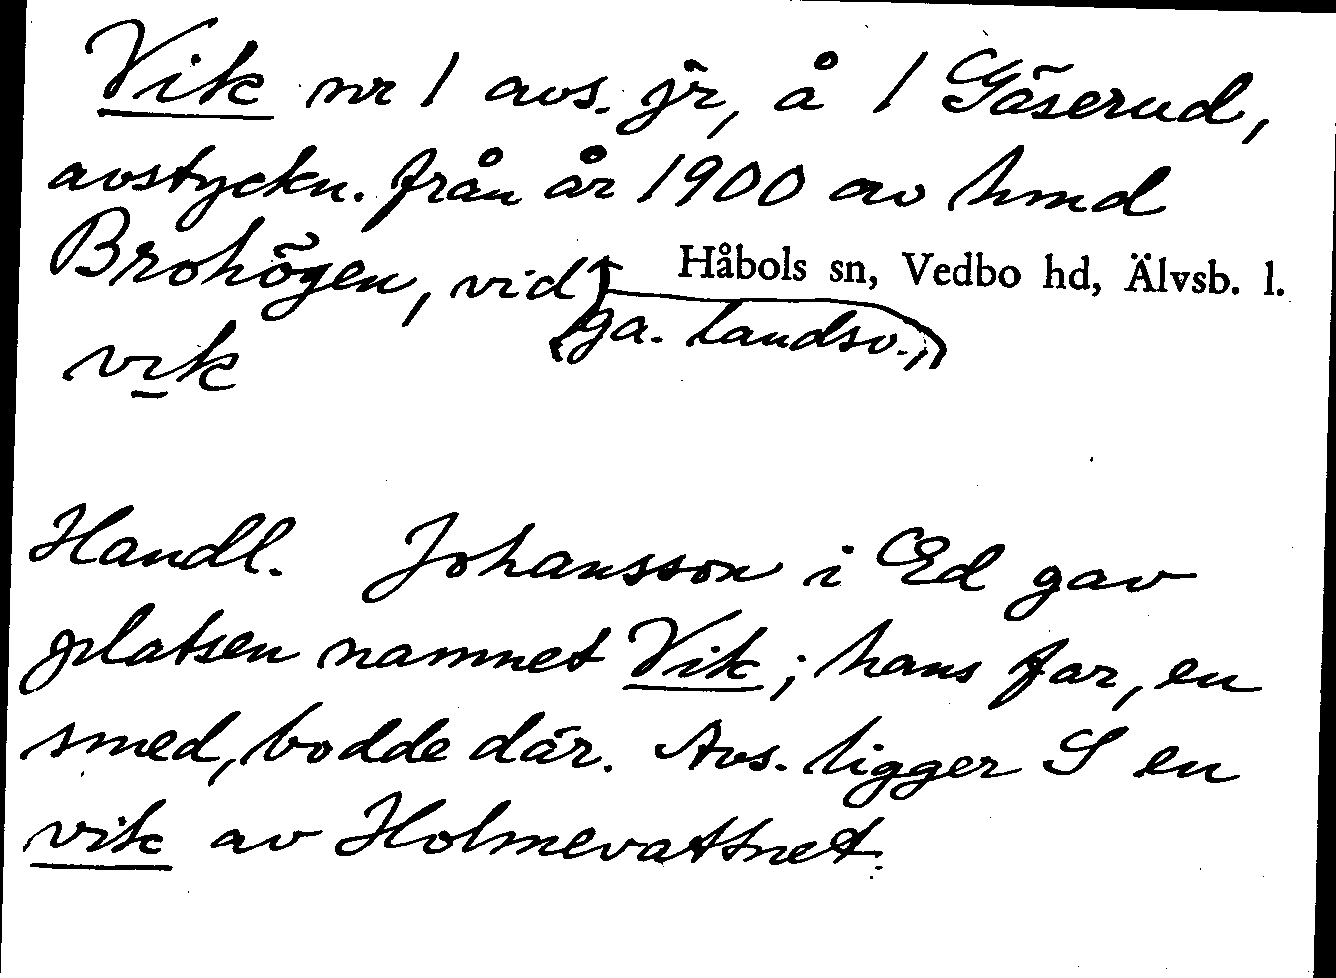 Vik nr 1 avs. jr, å 1 Gäserud,
avstyckn. från år 1900 av hmd
Brohögen, vid
Håbols sn, Vedbo hd, Älvsb. l.
(ga. landsv.,)
vik
Handl. Johansson i Ed gav
platsen namnet Vik; hans far, en
smed, bodde där. Avs. ligger S en
vik av Holmevattnet.